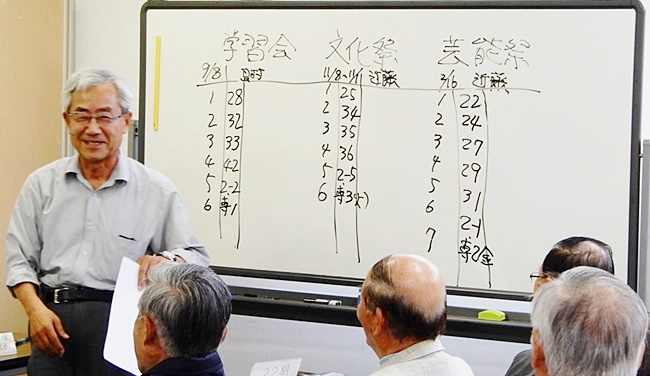 学習会 文化祭 芸能祭
9/8 日時 11/8~11/11 近藤 2/16 近藤
1 28 1 25 1 22
2 32 2 34 2 24
3 33 3 35 3 27
4 42 4 36 4 29
5 2-2 5 2-5 5 31
6 専1 6 専3 6 2-1
7 専2金
22期